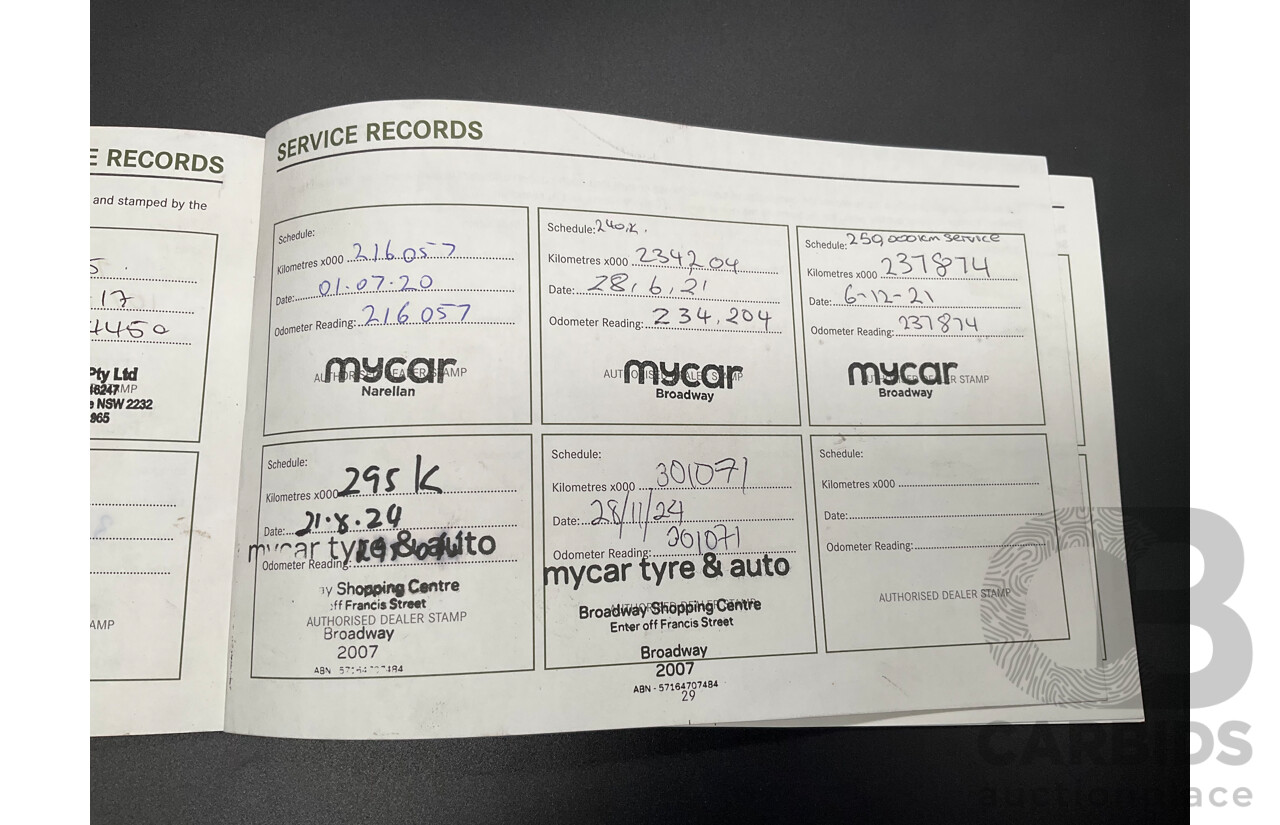 E RECORDS
and stamped by the
5.
17
4450
Pty Ltd
NSW 2232
965
AMP
SERVICE RECORDS
Schedule:
Kilometres x000 216057
Date: 01.07.20
Odometer Reading: 216057
AUTHORISED DEALER STAMP
mycar
Narellan
Schedule: 240K.
Kilometres x000 234204
Date: 28,6,21
Odometer Reading: 234,204
AUTHORISED DEALER STAMP
mycar
Broadway
Schedule: 250,000km service
Kilometres x000 237874
Date: 6-12-21
Odometer Reading: 237874
AUTHORISED DEALER STAMP
mycar
Broadway
Schedule:
Kilometres x000 295K
Date: 21.8.24
mycar tyre & auto
Odometer Reading:
y Shopping Centre
ff Francis Street
AUTHORISED DEALER STAMP
Broadway
2007
ABN
Schedule:
Kilometres x000 301071
Date: 28/11/24
Odometer Reading: 301071
mycar tyre & auto
AUTHORISED DEALER STAMP
Broadway Shopping Centre
Enter off Francis Street
Broadway
2007
ABN - 57164707484
29
Schedule:
Kilometres x000
Date:
Odometer Reading:
AUTHORISED DEALER STAMP
CARBIDS
auctionplace